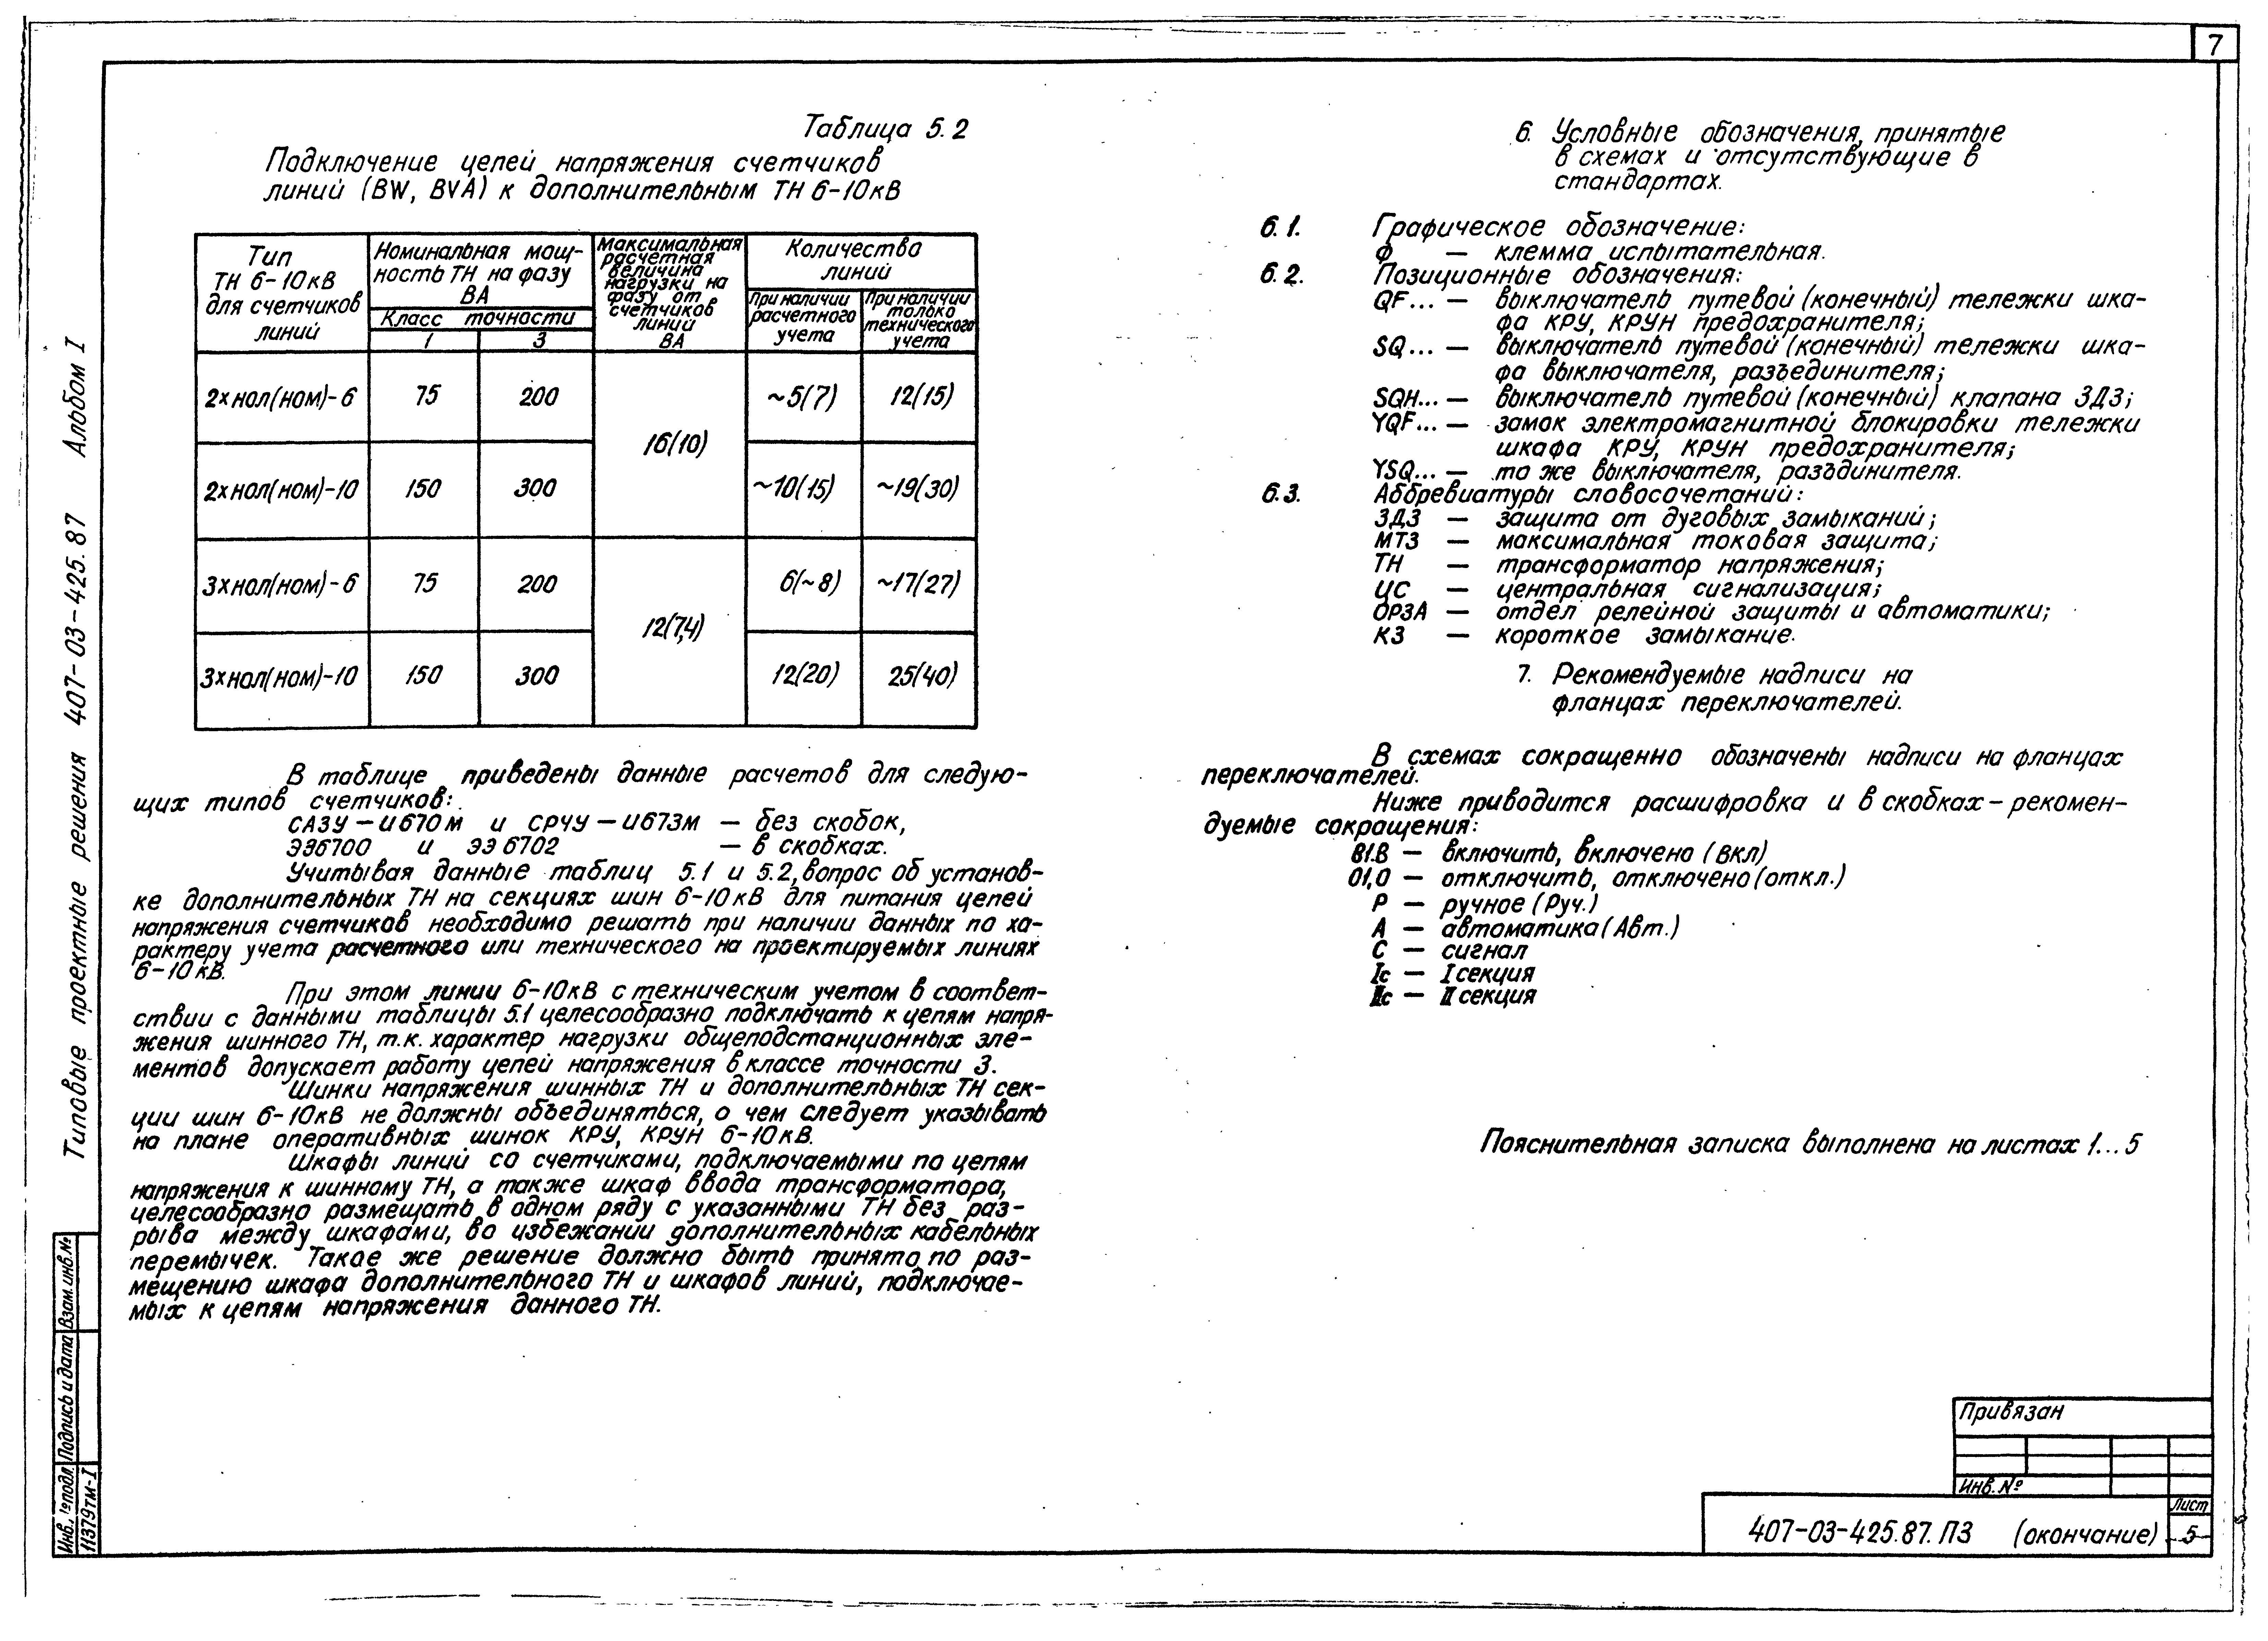 7
Таблица 5.2
Подключение цепей напряжения счетчиков
линий (BW, BVA) к дополнительным ТН 6-10кВ
Тип
ТН 6-10кВ
для счетчиков
линий
Номинальная мощ-
ность ТН на фазу
ВА
Класс точности
1
3
Максимальная
расчетная
величина
нагрузки на
фазу от
счетчиков
линий
ВА
Количества
линий
При наличии
расчетного
учета
При наличии
только
технического
учета
2хнол(ном)-6 75 200 16(10) ~5(7) 12(15)
2хнол(ном)-10 150 300 ~10(15) ~19(30)
3хнол(ном)-6 75 200 12(7,4) 6(~8) ~17(27)
3хнол(ном)-10 150 300 12(20) 25(40)
В таблице приведены данные расчетов для следую-
щих типов счетчиков:
САЗУ-И670М и СРЧУ-И673М — без скобок,
ЭЭ6700 и ЭЭ6702 — в скобках.
Учитывая данные таблиц 5.1 и 5.2, вопрос об установ-
ке дополнительных ТН на секциях шин 6-10кВ для питания цепей
напряжения счетчиков необходимо решать при наличии данных по ха-
рактеру учета расчетного или технического на проектируемых линиях
6-10кВ.
При этом линии 6-10кВ с техническим учетом в соответ-
ствии с данными таблицы 5.1 целесообразно подключать к цепям напря-
жения шинного ТН, т.к. характер нагрузки общеподстанционных эле-
ментов допускает работу цепей напряжения в классе точности 3.
Шинки напряжения шинных ТН и дополнительных ТН сек-
ции шин 6-10кВ не должны объединяться, о чем следует указывать
на плане оперативных шинок КРУ, КРУН 6-10кВ.
Шкафы линий со счетчиками, подключаемыми по цепям
напряжения к шинному ТН, а также шкаф ввода трансформатора,
целесообразно размещать в одном ряду с указанными ТН без раз-
рыва между шкафами, во избежании дополнительных кабельных
перемычек. Такое же решение должно быть принято по раз-
мещению шкафа дополнительного ТН и шкафов линий, подключае-
мых к цепям напряжения данного ТН.
6. Условные обозначения, принятые
в схемах и отсутствующие в
стандартах.
6.1. Графическое обозначение:
Ф — клемма испытательная.
6.2. Позиционные обозначения:
QF... — выключатель путевой (конечный) тележки шка-
фа КРУ, КРУН предохранителя;
SQ... — выключатель путевой (конечный) тележки шка-
фа выключателя, разъединителя;
SQH... — выключатель путевой (конечный) клапана ЗДЗ;
YQF... — замок электромагнитной блокировки тележки
шкафа КРУ, КРУН предохранителя;
YSQ... — то же выключателя, разъдинителя.
6.3. Аббревиатуры словосочетаний:
ЗДЗ — защита от дуговых замыканий;
МТЗ — максимальная токовая защита;
ТН — трансформатор напряжения;
ЦС — центральная сигнализация;
ОРЗА — отдел релейной защиты и автоматики;
КЗ — короткое замыкание.
7. Рекомендуемые надписи на
фланцах переключателей.
В схемах сокращенно обозначены надписи на фланцах
переключателей.
Ниже приводится расшифровка и в скобках - рекомен-
дуемые сокращения:
В1.В — включить, включено (Вкл)
01,0 — отключить, отключено (откл.)
Р — ручное (Руч.)
А — автоматика (Авт.)
С — сигнал
Iс — I секция
IIс — II секция
Пояснительная записка выполнена на листах 1...5
Типовые проектные решения 407-03-425.87 Альбом I
Взам. инв.№
Подпись и дата
Инв. № подл.
11379тм-I
Привязан
Инв. №
407-03-425.87.ПЗ (окончание)
Лист
5